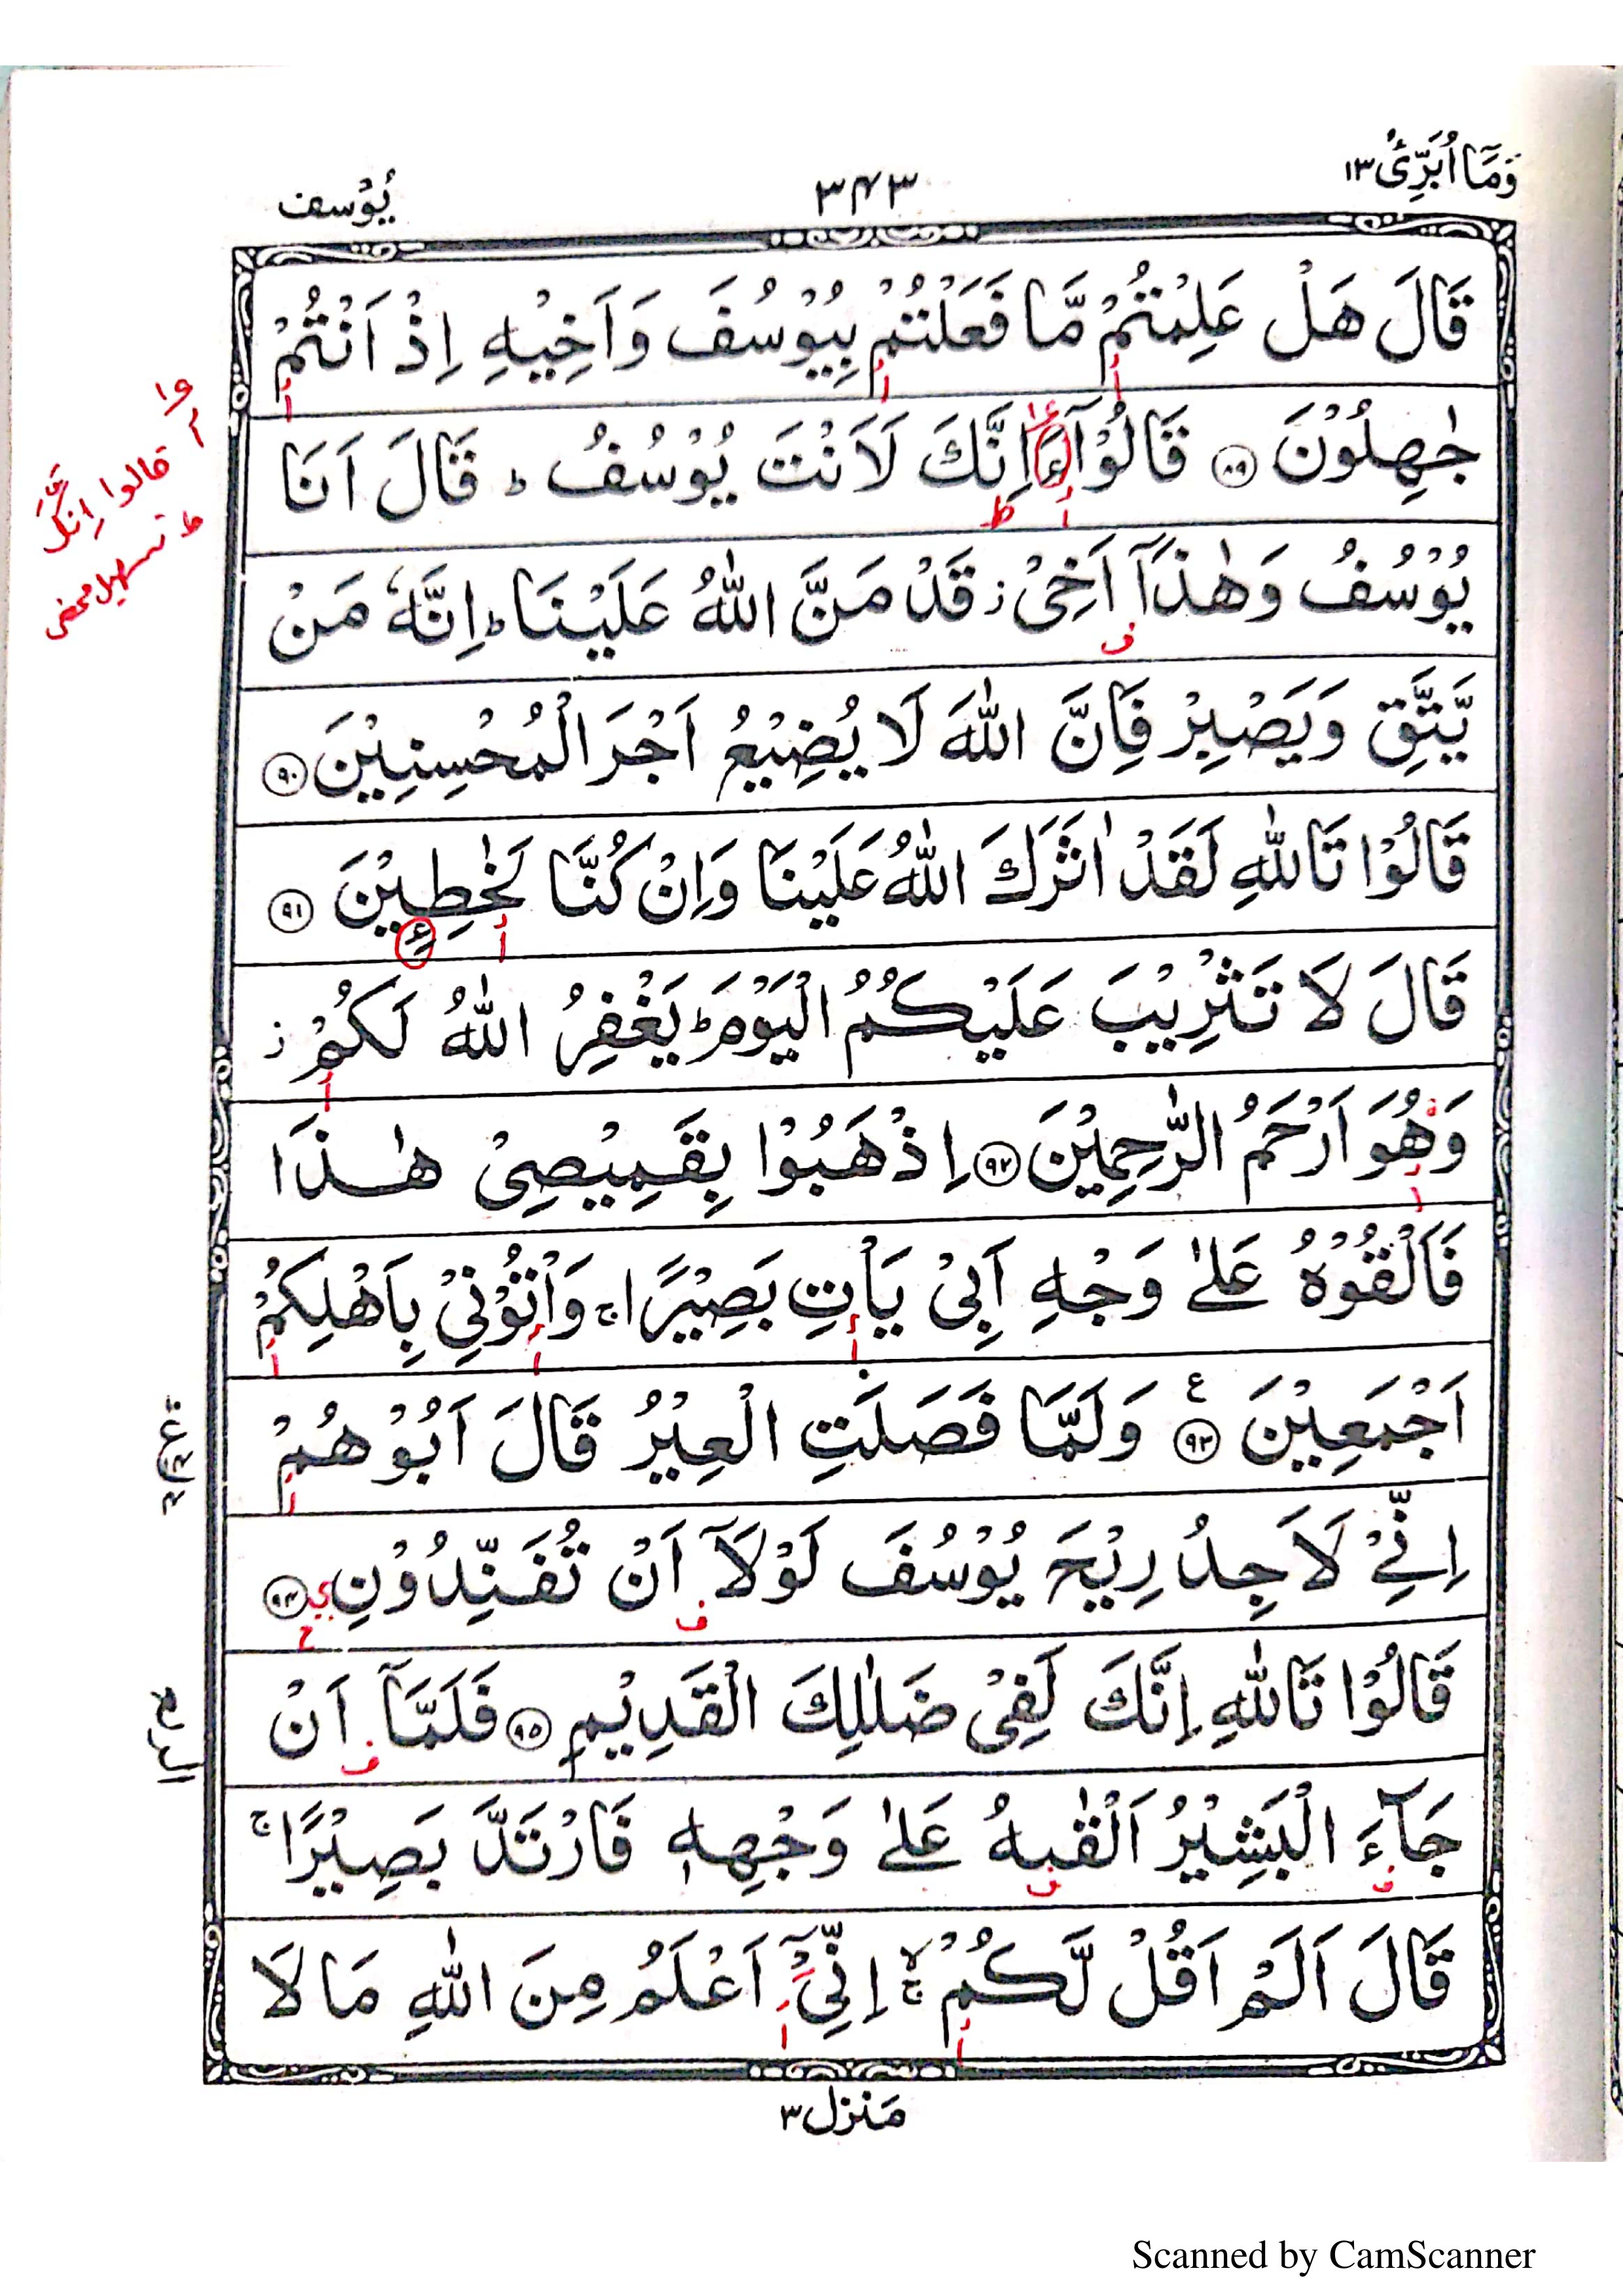 وَمَآ اُبَرِّئُ ١٣
٣٤٣
يُوْسف
قَالَ هَلْ عَلِمْتُمْ مَّا فَعَلْتُمْ بِيُوْسُفَ وَاَخِيْهِ اِذْ اَنْتُمْ
جٰهِلُوْنَ ۝٨٩ قَالُوْٓا ءَاِنَّكَ لَاَنْتَ يُوْسُفُ ؕ قَالَ اَنَا
يُوْسُفُ وَهٰذَآ اَخِیْ ز قَدْ مَنَّ اللّٰهُ عَلَيْنَا ؕ اِنَّهٗ مَنْ
يَّتَّقِ وَيَصْبِرْ فَاِنَّ اللّٰهَ لَا يُضِيْعُ اَجْرَ الْمُحْسِنِيْنَ ۝٩٠
قَالُوْا تَاللّٰهِ لَقَدْ اٰثَرَكَ اللّٰهُ عَلَيْنَا وَاِنْ كُنَّا لَخٰطِـِٕيْنَ ۝٩١
قَالَ لَا تَثْرِيْبَ عَلَيْكُمُ الْيَوْمَ ؕ يَغْفِرُ اللّٰهُ لَكُمْ ز
وَهُوَ اَرْحَمُ الرّٰحِمِيْنَ ۝٩٢ اِذْهَبُوْا بِقَمِيْصِیْ هٰذَا
فَاَلْقُوْهُ عَلٰی وَجْهِ اَبِیْ يَاْتِ بَصِيْرًا ۚ وَاْتُوْنِیْ بِاَهْلِكُمْ
اَجْمَعِيْنَ ۝٩٣ ع وَلَمَّا فَصَلَتِ الْعِيْرُ قَالَ اَبُوْهُمْ
اِنِّیْ لَاَجِدُ رِيْحَ يُوْسُفَ لَوْلَآ اَنْ تُفَنِّدُوْنِ ۝٩٤
قَالُوْا تَاللّٰهِ اِنَّكَ لَفِیْ ضَلٰلِكَ الْقَدِيْمِ ۝٩٥ فَلَمَّآ اَنْ
جَآءَ الْبَشِيْرُ اَلْقٰىهُ عَلٰی وَجْهِهٖ فَارْتَدَّ بَصِيْرًا ۚ
قَالَ اَلَمْ اَقُلْ لَّكُمْ ۚۙ اِنِّیْٓ اَعْلَمُ مِنَ اللّٰهِ مَا لَا
مَنزل ٣
قالوا اِنَّكَ
تسهيل محض
Scanned by CamScanner